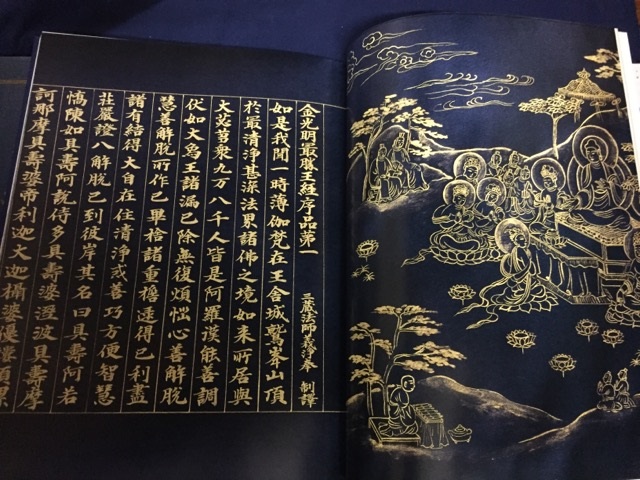 金光明最勝王經序品第一
三藏法師義淨奉 制譯
如是我聞一時薄伽梵在王舍城鷲峯山頂
於最清淨甚深法界諸佛之境如來所居與
大苾芻衆九万八千人皆是阿羅漢能善調
伏如大烏王諸漏已除無復煩惱心善解脫
慧善解脫所作已畢捨諸重檐逮得己利盡
諸有結得大自在住清淨戒善巧方便智慧
莊嚴證八解脫已到彼岸其名曰具壽阿若
憍陳如具壽阿說侍多具壽婆澀波具壽摩
訶那摩具壽婆帝利迦大迦攝婆優樓頻螺